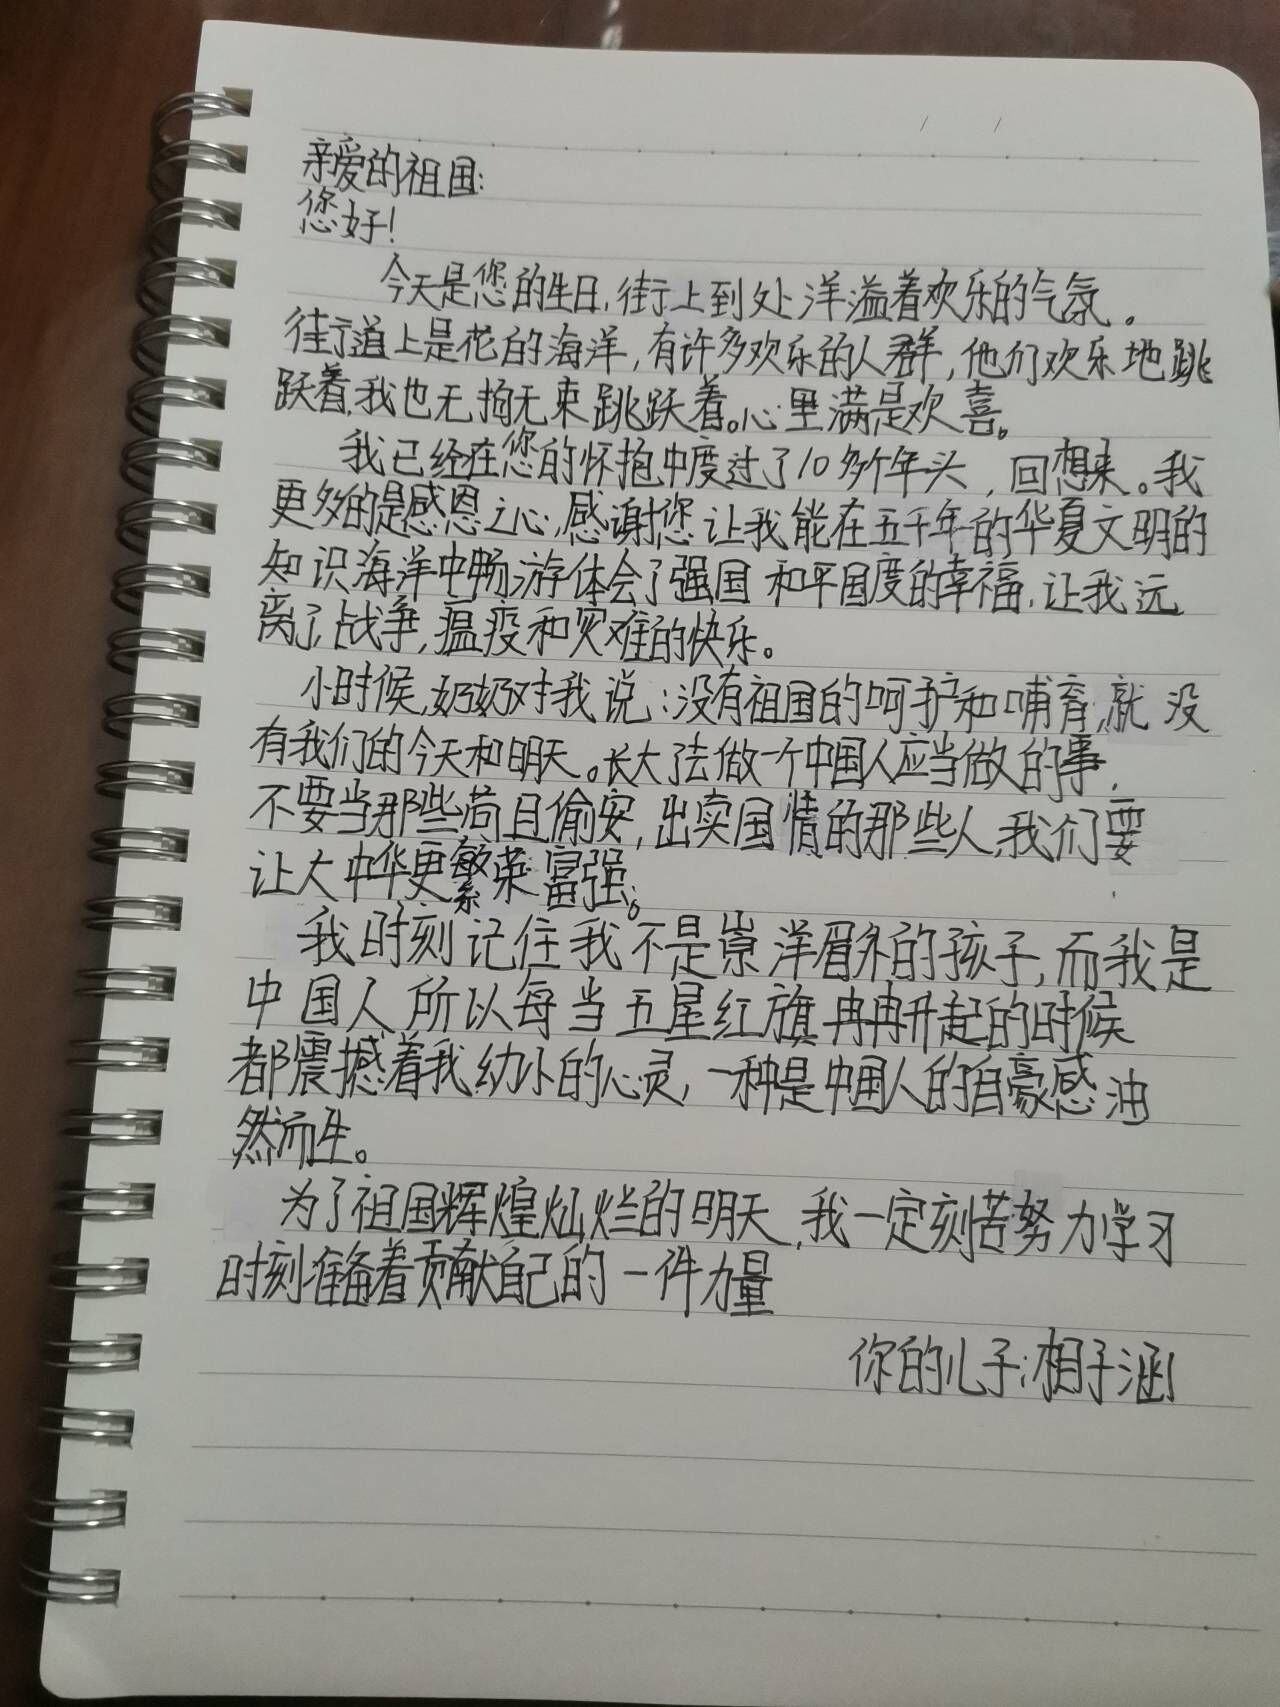 亲爱的祖国:
您好!
今天是您的生日,街上到处洋溢着欢乐的气氛。
街道上是花的海洋,有许多欢乐的人群,他们欢乐地跳
跃着,我也无拘无束跳跃着。心里满是欢喜。
我已经在您的怀抱中度过了10多个年头,回想来。我
更多的是感恩之心,感谢您让我能在五千年的华夏文明的
知识海洋中畅游体会了强国和平国度的幸福,让我远
离了战争,瘟疫和灾难的快乐。
小时候,奶奶对我说:没有祖国的呵护和哺育,就没
有我们的今天和明天。长大了去做一个中国人应当做的事,
不要当那些苟且偷安,出卖国情的那些人,我们要
让大中华更繁荣富强。
我时刻记住我不是崇洋眉外的孩子,而我是
中国人所以每当五星红旗冉冉升起的时候
都震撼着我幼小的心灵,一种是中国人的自豪感油
然而生。
为了祖国辉煌灿烂的明天,我一定刻苦努力学习
时刻准备着贡献自己的一件力量
你的儿子:相子涵